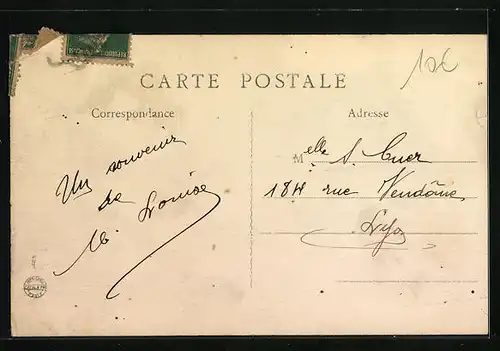 10€
CARTE POSTALE
Correspondance
Adresse
Un souvenir
de
M. Louise
Melle S. Cuer
184 rue Vendôme
Lyon